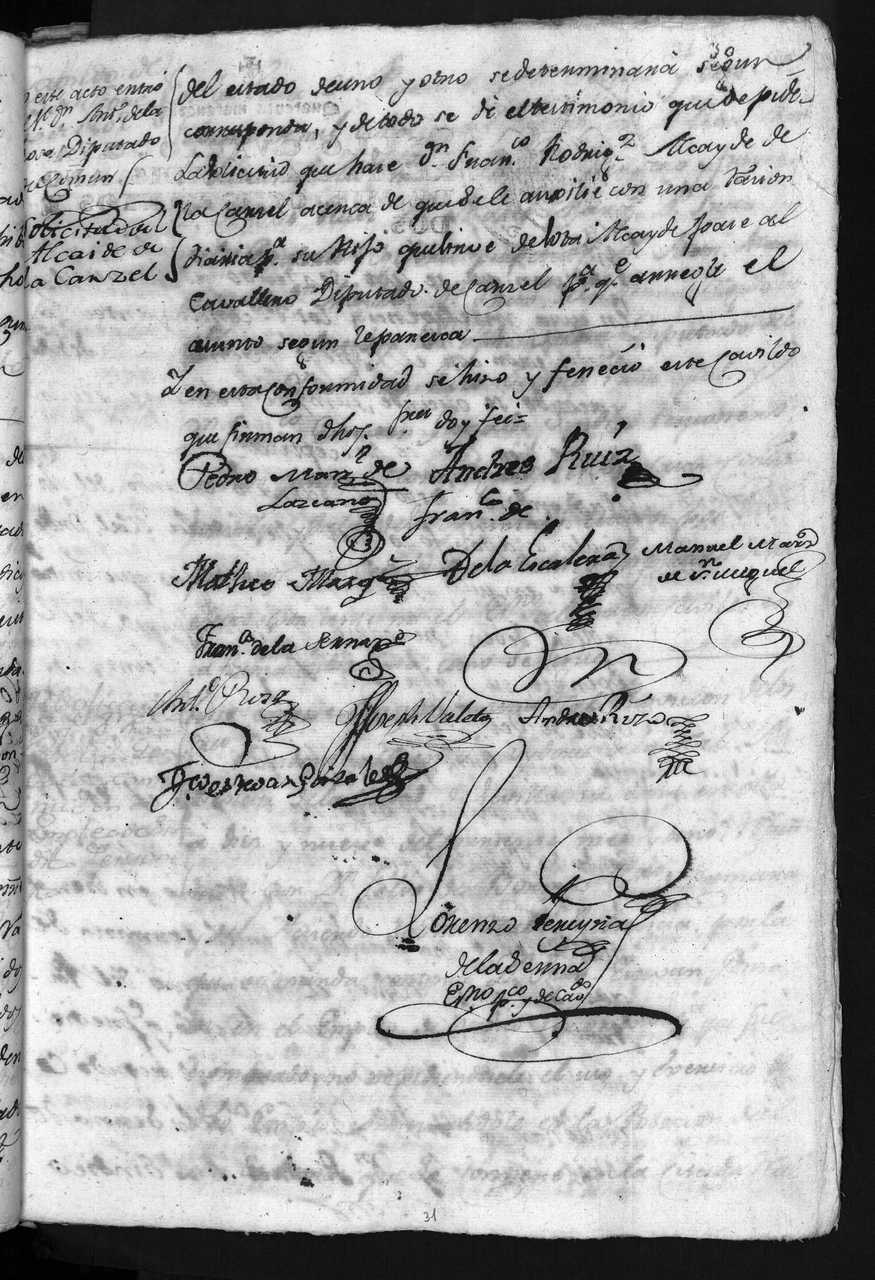 en este acto entró
el Sr. Dn. Antº. de la
Rosa Diputado
del Comun
Solicitud del
Alcaide de
la Carzel
del estado de uno y otro se determinará segun
corresponda, y de todo se dé el testimonio que se pide
La solicitud que hace Dn. Franco. Rodrigz. Alcayde de
la Carzel acerca de que se le auxilie con una Racion
diaria pa. su hijo que sirve de Sota Alcayde pase al
Cavallero Diputado de Carzel pa. qe. arregle el
asunto segun le paresca
Y en esta conformidad se hizo y feneció este Cavildo
que firman dhos. sres. doy fee=
Pedro Marn. de
Lazcano
Andres Ruiz
Franco. de
Matheo Marqz
De la Escalera
Manuel Marn
Franco. de la Serna
Antº. Rosa
Joseph Valeta
Andres Rizo
Gonzales
Lorenzo Pereyra
de la Serna
Esno. pco. y de Cavdo
31